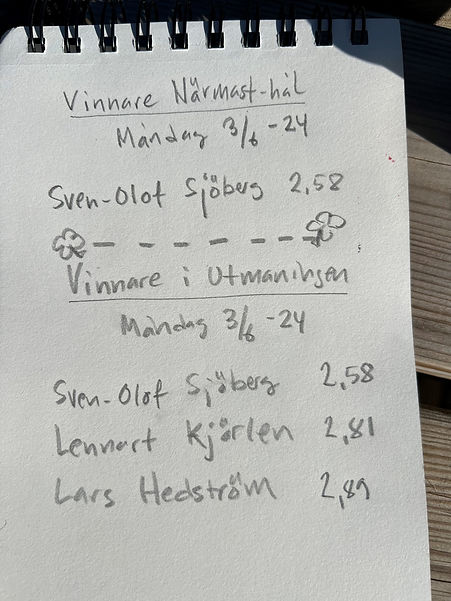 Vinnare Närmast-hål
Måndag 3/6 -24
Sven-Olof Sjöberg 2,58
Vinnare i Utmaningen
Måndag 3/6 -24
Sven-Olof Sjöberg 2,58
Lennart Kjörlen 2,81
Lars Hedström 2,89